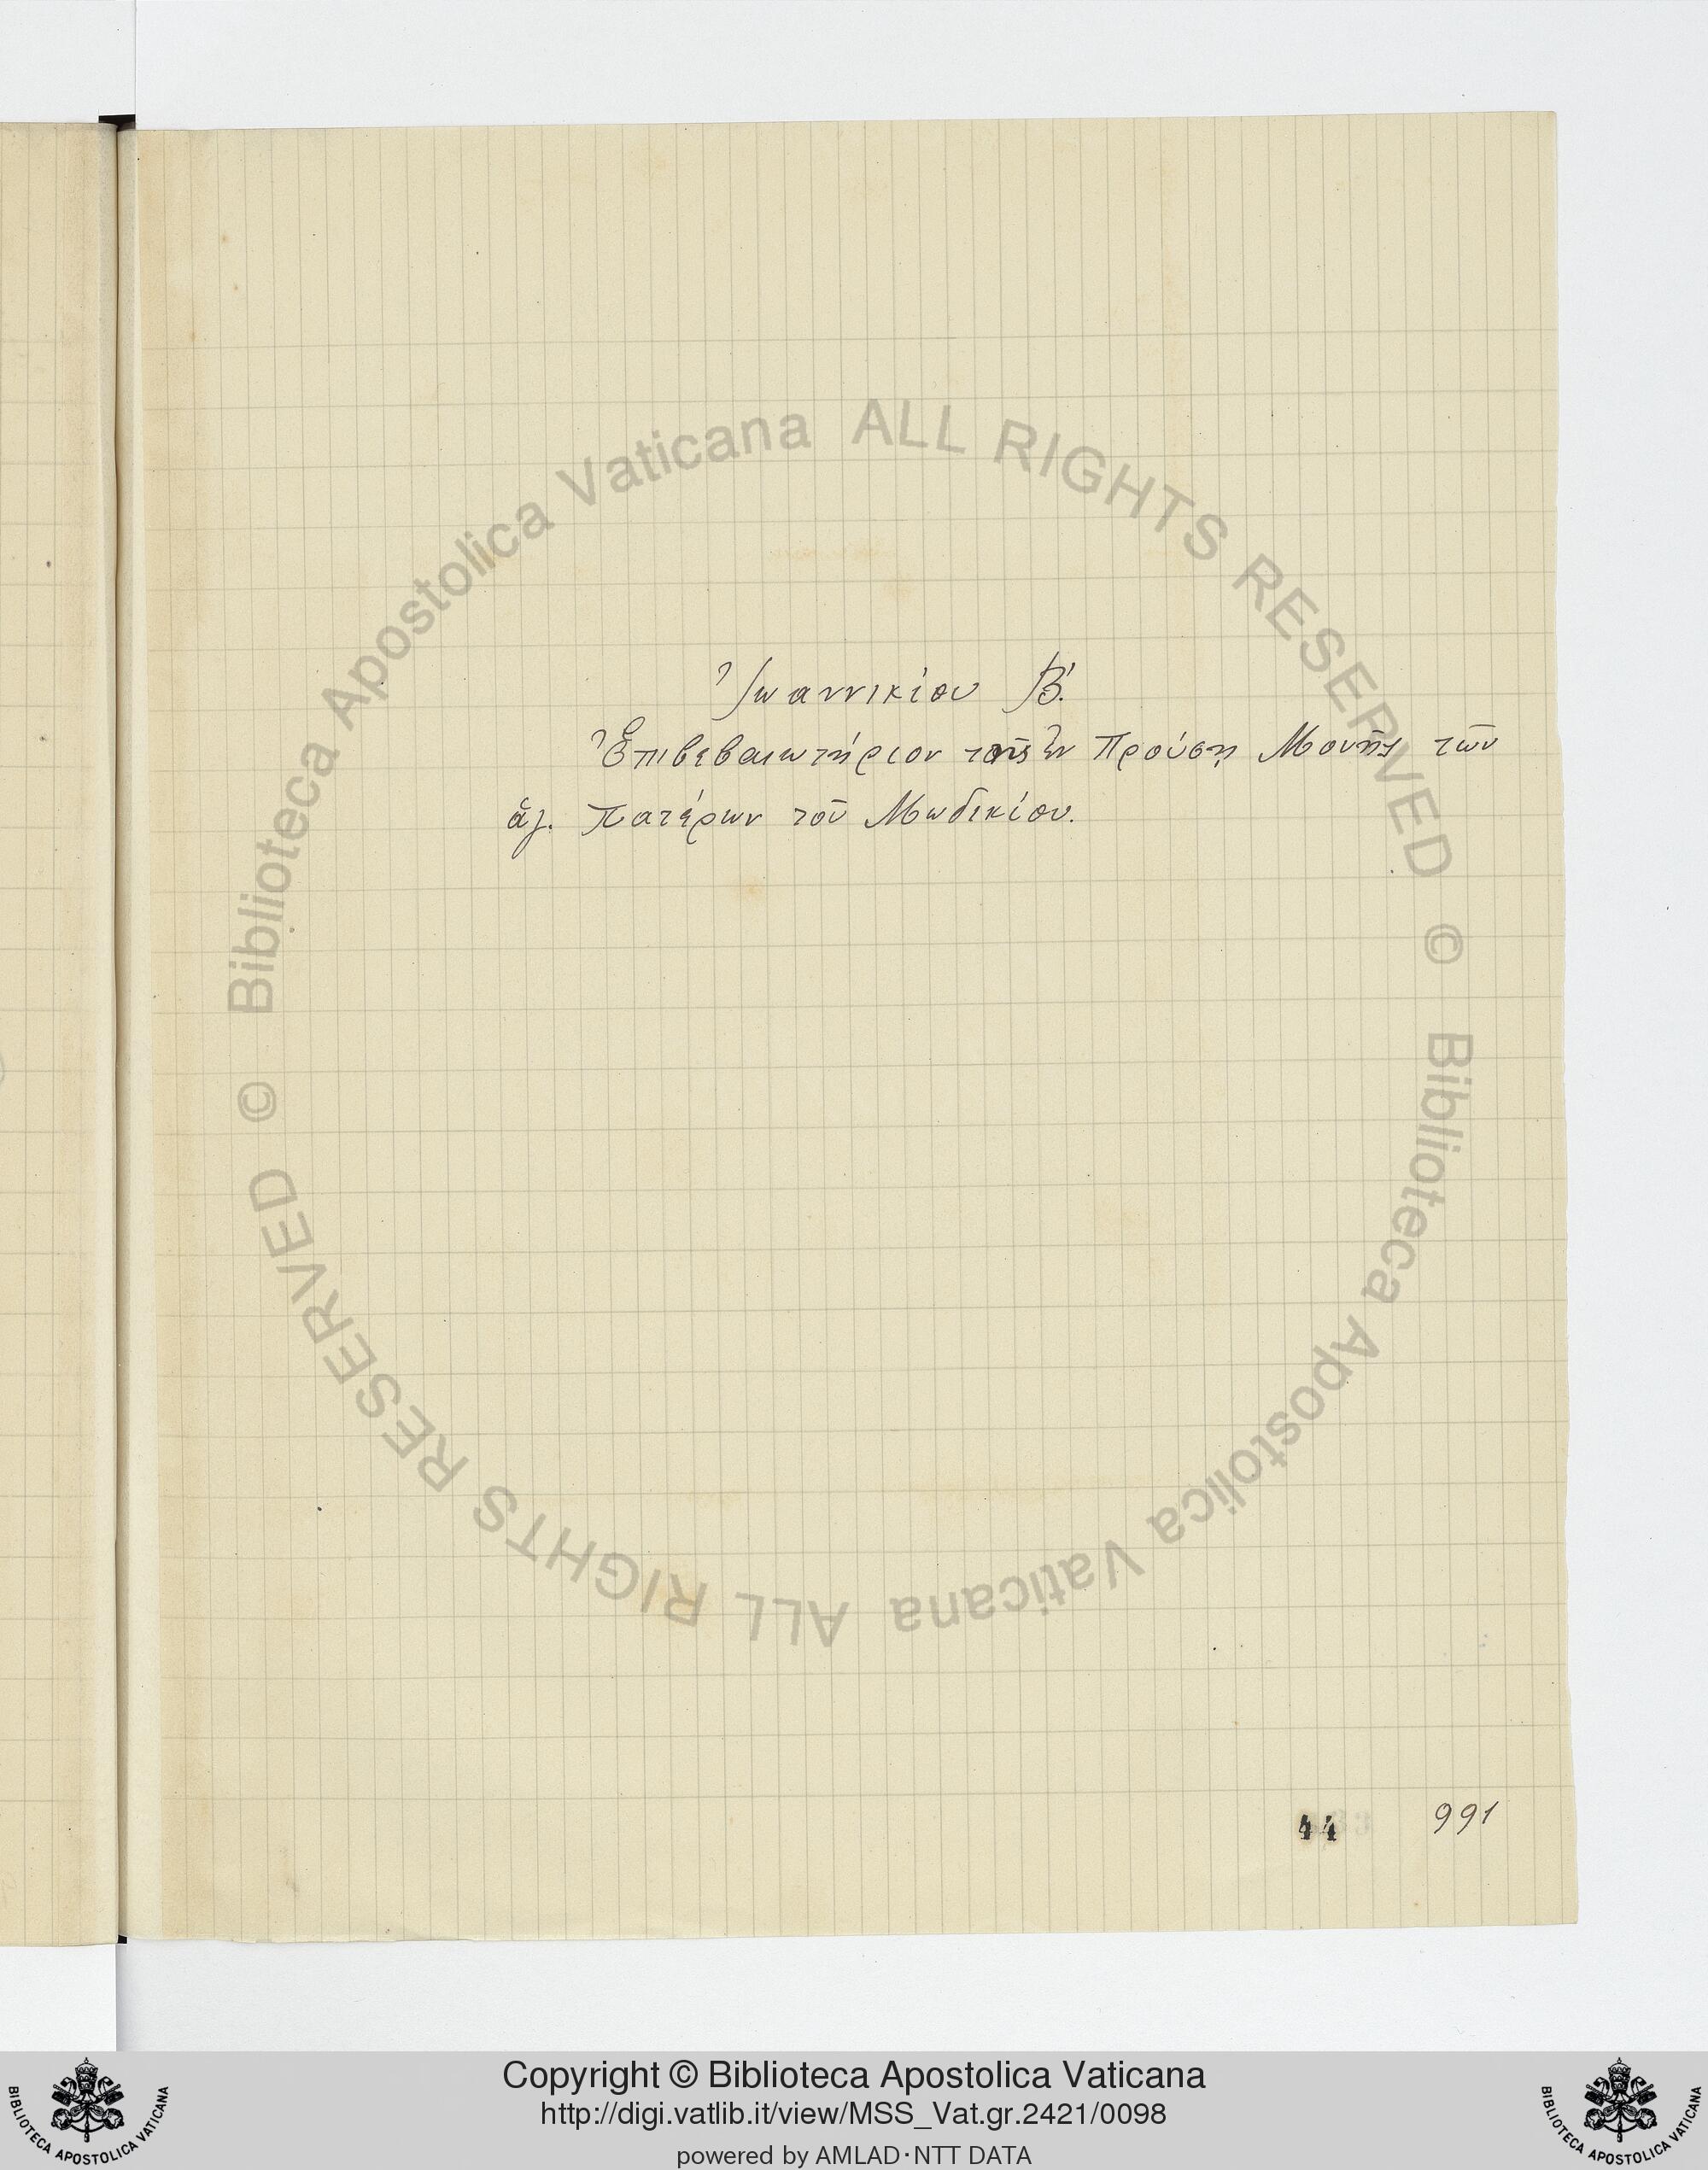 Ἰωαννικίου Β΄.
Ἐπιβεβαιωτήριον τῆς ἐν Προύσῃ Μονῆς τῶν
ἁγ. Πατέρων τοῦ Μωδικίου.
44 991
© Biblioteca Apostolica Vaticana ALL RIGHTS RESERVED
© Biblioteca Apostolica Vaticana ALL RIGHTS RESERVED
Copyright © Biblioteca Apostolica Vaticana
http://digi.vatlib.it/view/MSS_Vat.gr.2421/0098
powered by AMLAD·NTT DATA
BIBLIOTECA APOSTOLICA VATICANA
BIBLIOTECA APOSTOLICA VATICANA